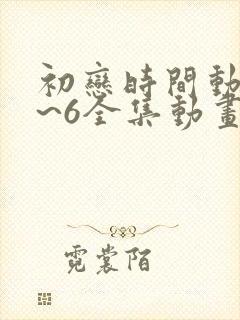 初戀時間動
~6全集動畫
霓裳陌